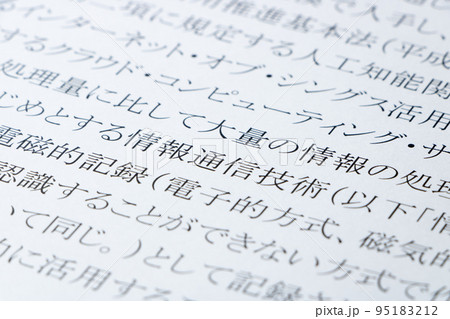 情推進基本法(平成
一項に規定する人工知能関
インターネット・オブ・シングス活用
するクラウド・コンピューティング・サ
処理量に比して大量の情報の処理
じめとする情報通信技術(以下「情
電磁的記録(電子的方式、磁気的
認識することができない方式で作
いて同じ。)として記録さ
に活用する
pixta.jp - 95183212